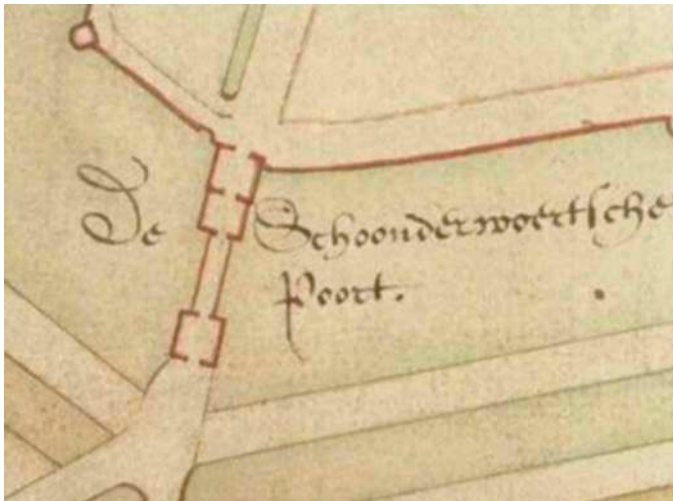 De Schoonderwoertsche
Poort.